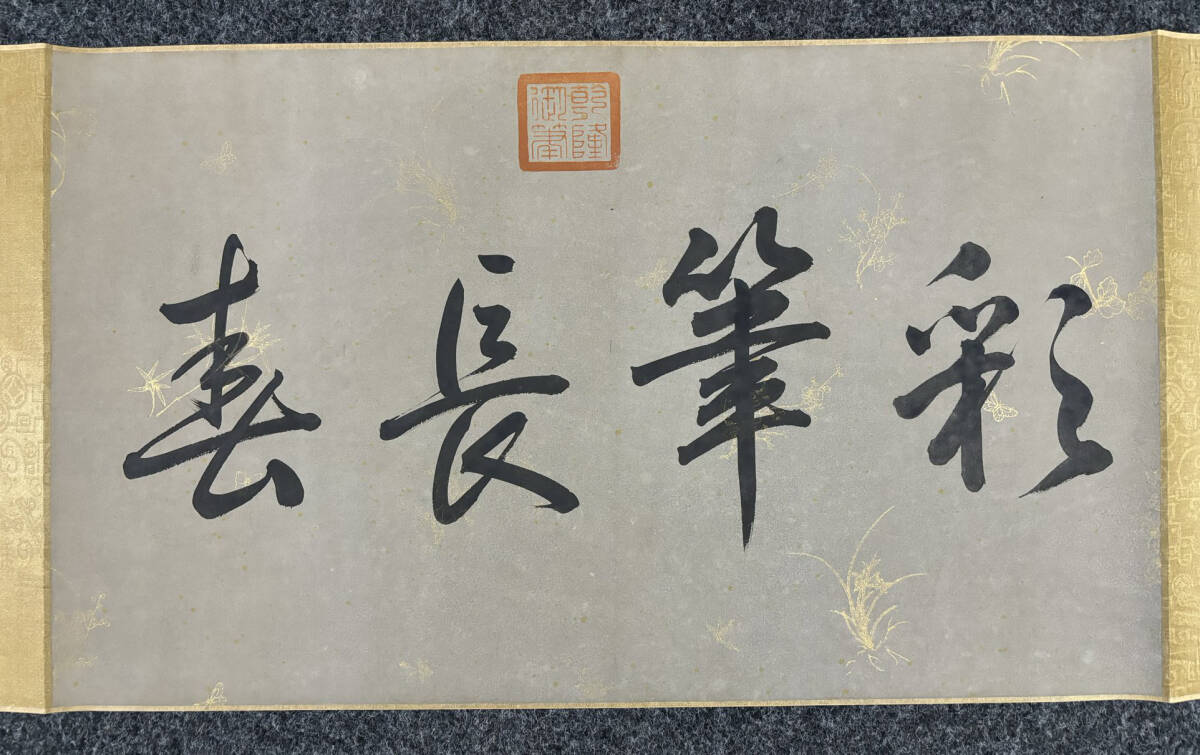 乾隆
御筆
彩筆長春